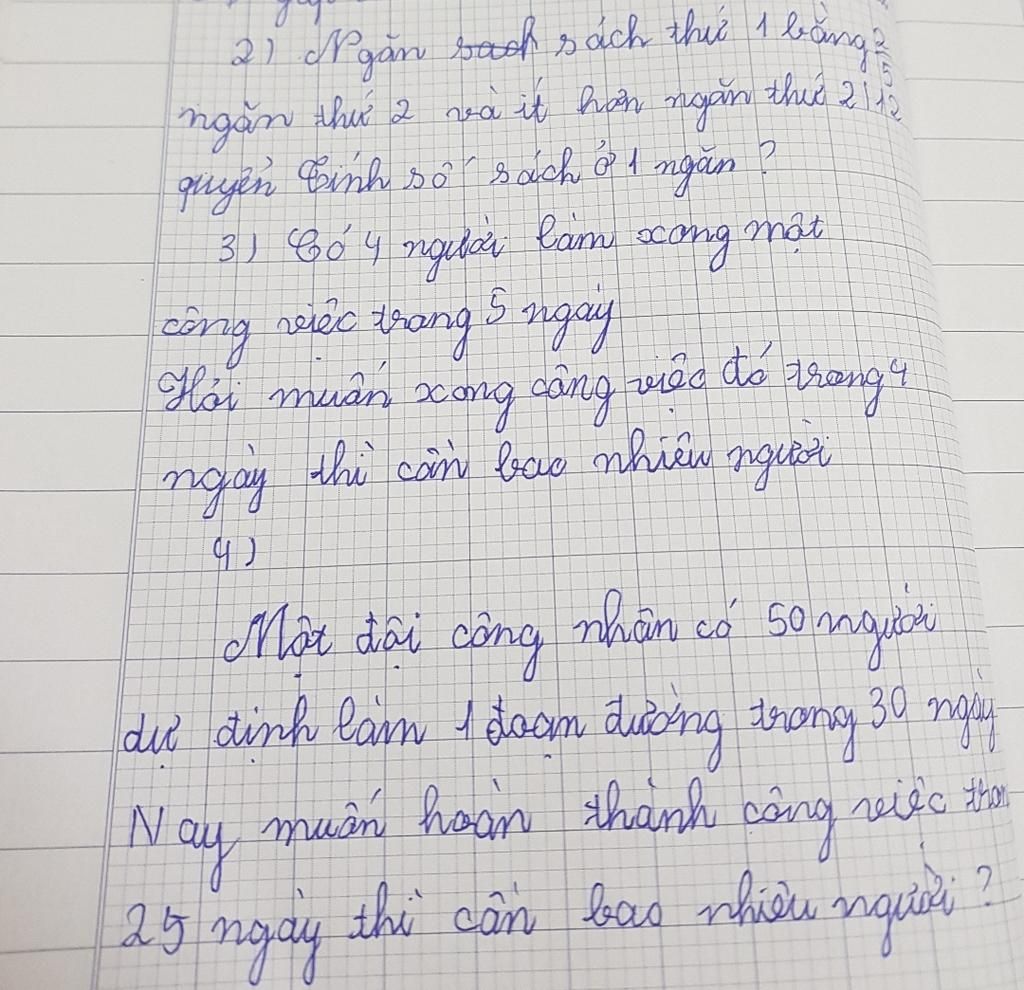 2) Ngăn sach sách thứ 1 bằng 2/5
ngăn thứ 2 và ít hơn ngăn thứ 2 12
quyển tính số sách ở 1 ngăn?
3) Có 4 người làm xong một
công việc trong 5 ngày
Hỏi muốn xong công việc đó trong 4
ngày thì cần bao nhiêu người
4)
Một đội công nhân có 50 người
dự định làm 1 đoạn đường trong 30 ngày
Nay muốn hoàn thành công việc tron
25 ngày thì cần bao nhiêu người?